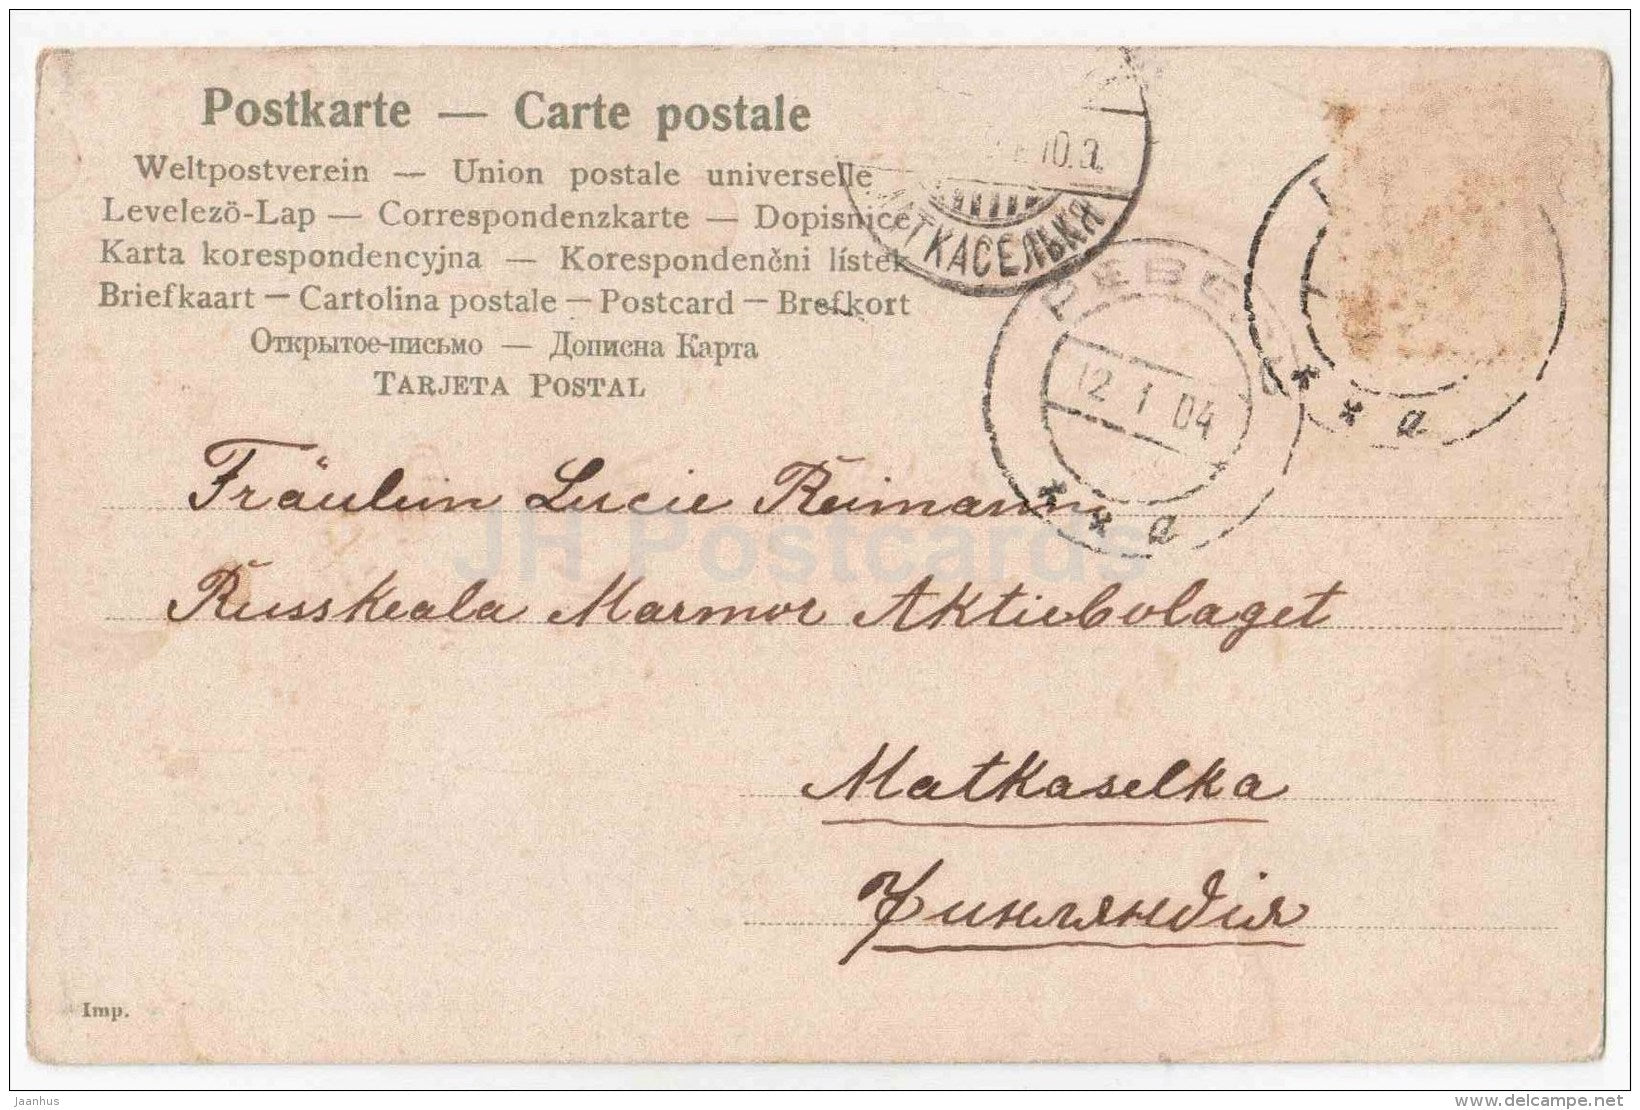 Postkarte — Carte postale
Weltpostverein — Union postale universelle
Levelezö-Lap — Correspondenzkarte — Dopisnice
Karta korespondencyjna — Korespondenčni lístek
Briefkaart — Cartolina postale — Postcard — Brefkort
Открытое-письмо — Дописна Карта
TARJETA POSTAL
10.
МАТКАСЕЛЬКЯ
РЕВЕЛЬ
12 1 04
* * a
* * a
Fräulein Lucie Reimann
Russkeala Marmor Aktiebolaget
Matkaselka
Финляндія
Imp.
JH Postcards
Jaanhus
www.delcampe.net